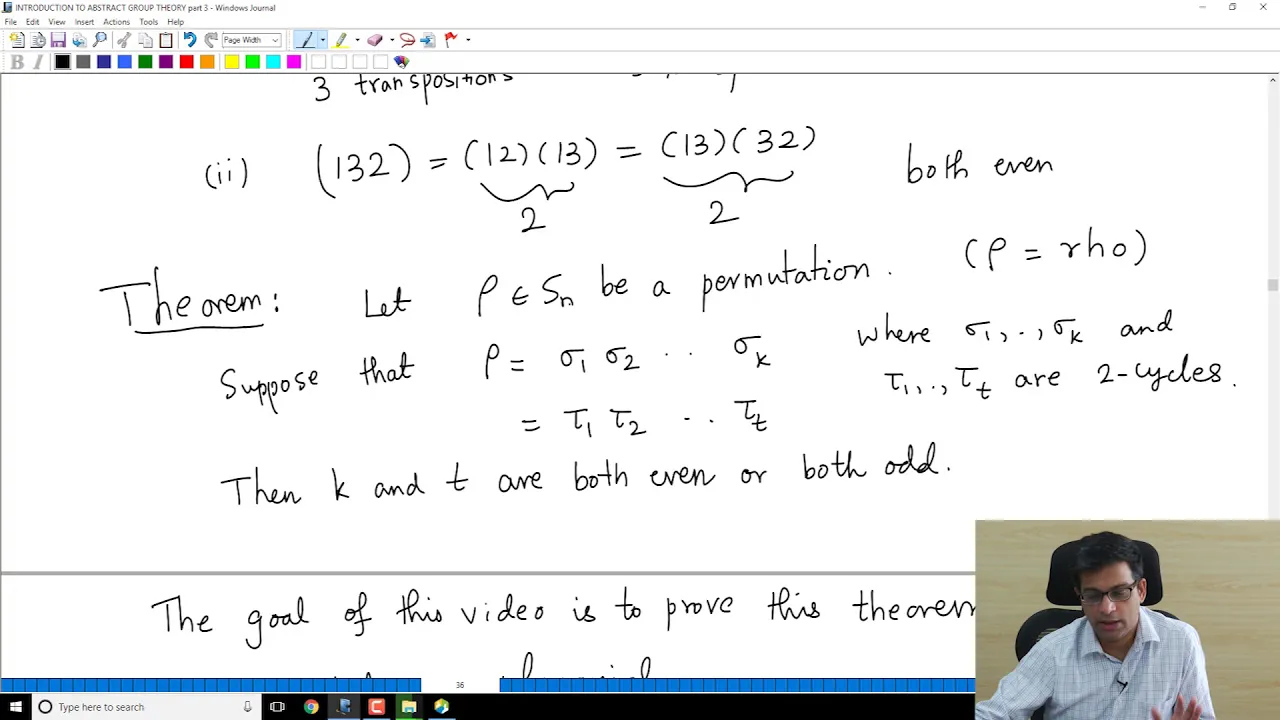 INTRODUCTION TO ABSTRACT GROUP THEORY part 3 - Windows Journal
File Edit View Insert Actions Tools Help
Page Width
B I
3 transpositions
(ii) (132) = (12)(13) = (13)(32) both even
2 2
Theorem: Let ρ ∈ Sₙ be a permutation. (ρ = rho)
Suppose that ρ = σ₁ σ₂ .. σₖ where σ₁,..,σₖ and
= τ₁ τ₂ .. τₜ τ₁,..,τₜ are 2-cycles.
Then k and t are both even or both odd.
The goal of this video is to prove this theorem
36
Type here to search